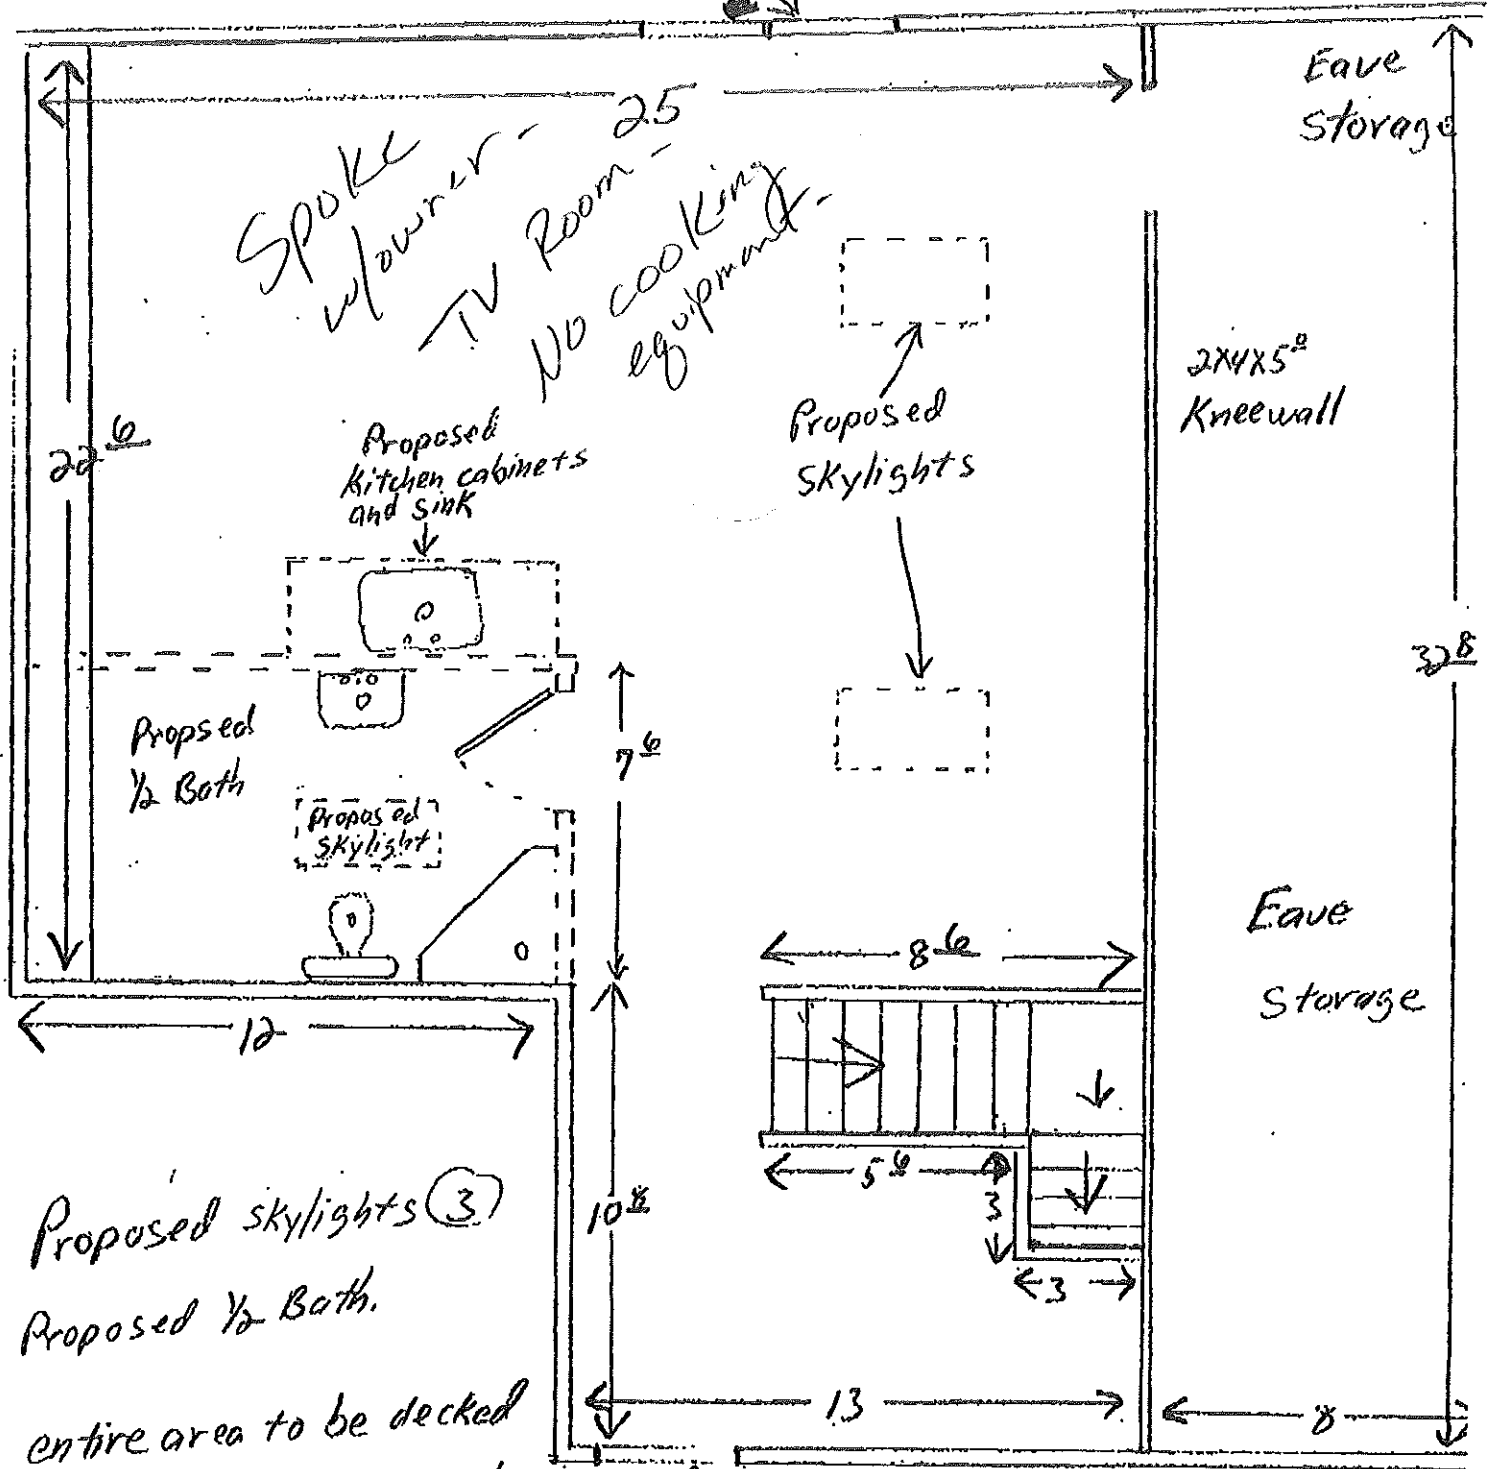 Eave
Storage
25
Spoke
w/owner -
TV Room -
No cooking
equipmant -
2x4x5⁰
Kneewall
22 6
Proposed
Kitchen cabinets
and sink
Proposed
Skylights
32 8
Propsed
1/2 Bath
7 6
Proposed
Skylight
8 6
Eave
Storage
12
5 6
3
3
10 8
Proposed skylights 3
Proposed 1/2 Bath.
entire area to be decked
13
8